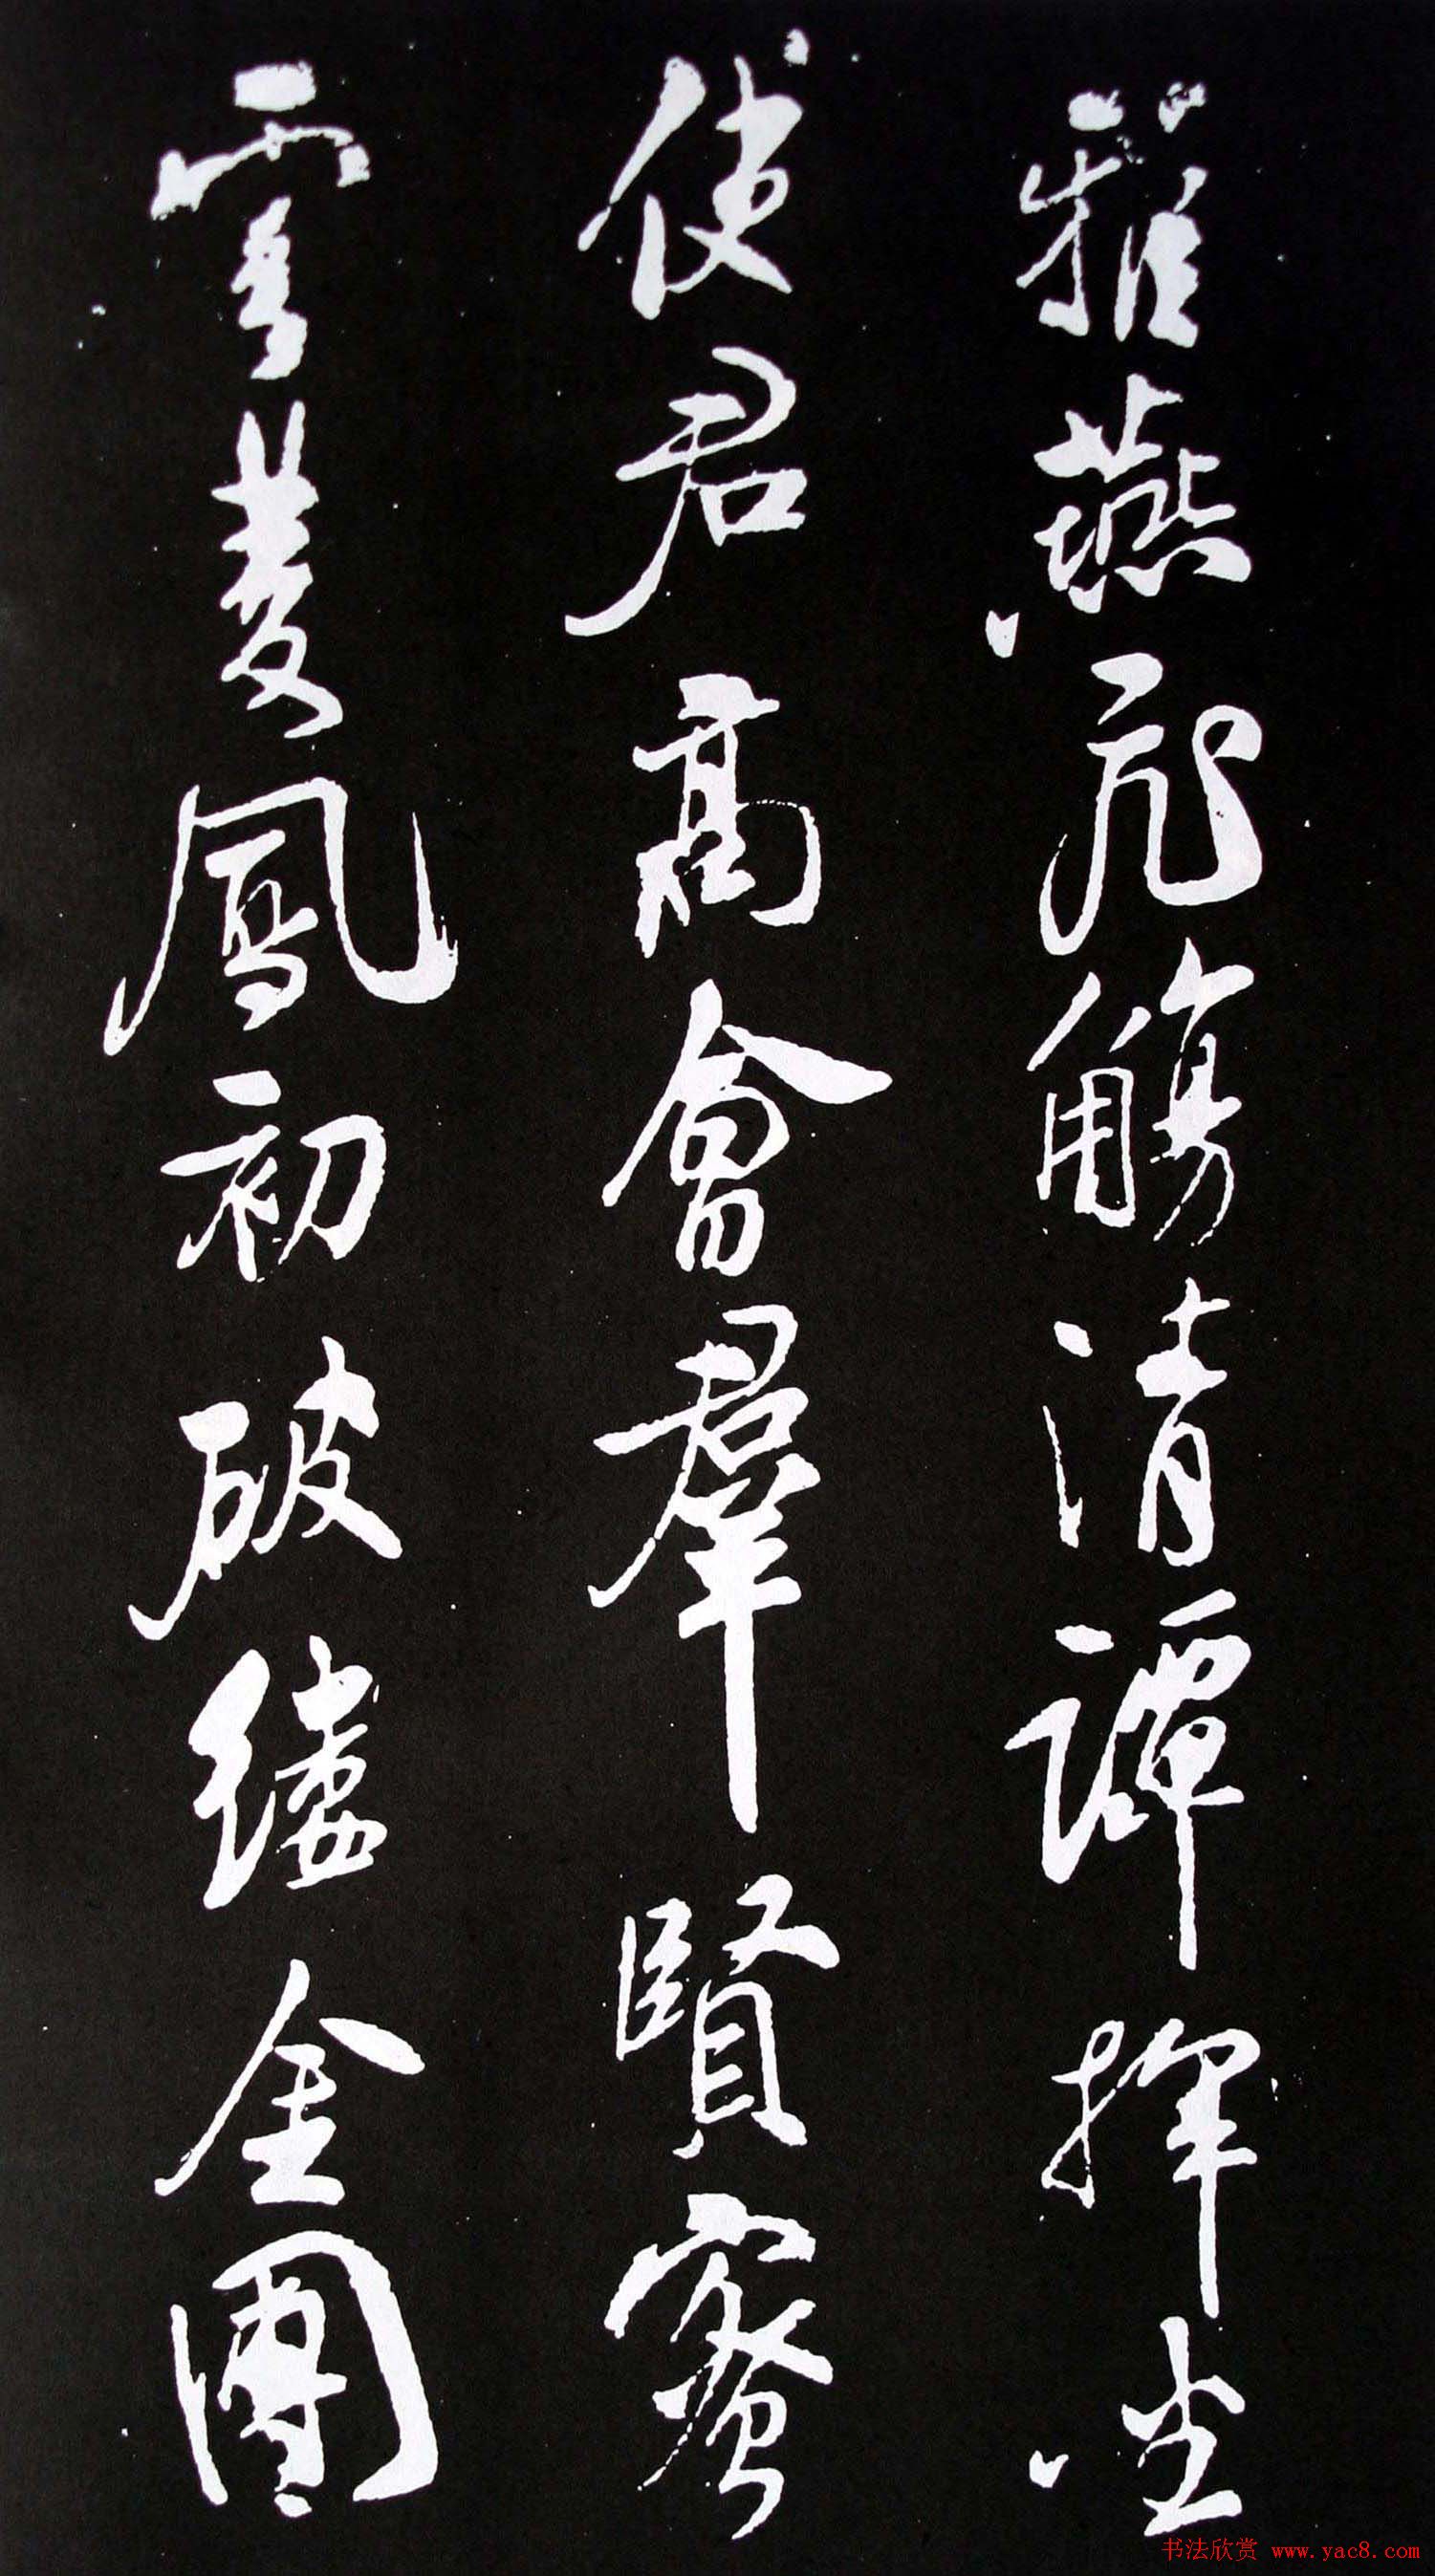 雅燕飛觴清譚揮坐
使君高會羣賢密
雲雙鳳初破縷金團
书法欣赏 www.yac8.com